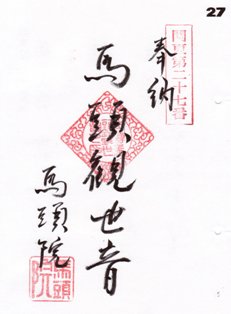 27
関東第二十七番
奉納
馬頭観世音
馬頭院
馬頭院